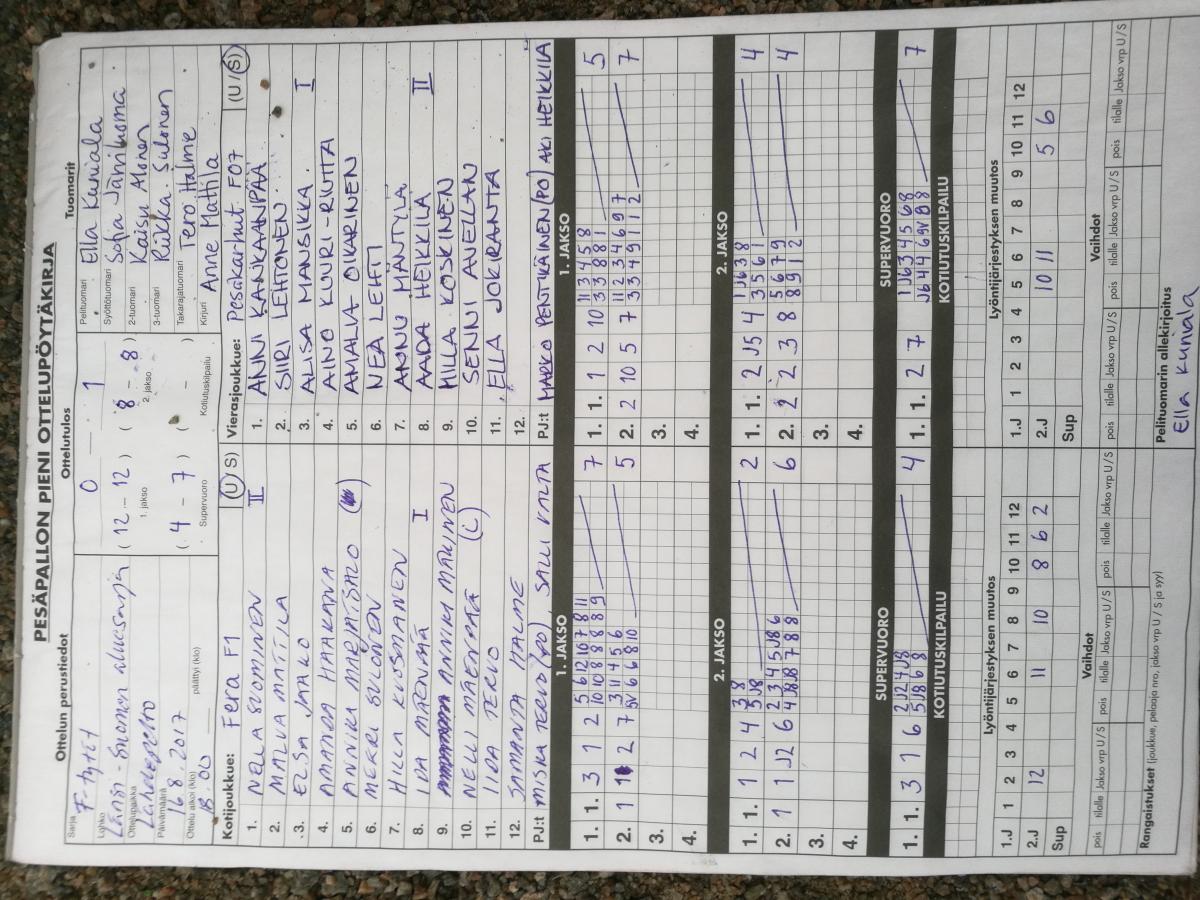 PESÄPALLON PIENI OTTELUPÖYTÄKIRJA
Ottelun perustiedot
Sarja F-tytöt
Lohko Länsi-Suomen aluesarja
Ottelupaikka Lähdepelto
Päivämäärä 16 8. 2017
Ottelu alkoi (klo) 18.00 päättyi (klo)
Ottelutulos
0 1
( 12 - 12 ) ( 8 - 8 )
1. jakso 2. jakso
( 4 - 7 ) ( - )
Supervuoro Kotiutuskilpailu
Tuomarit
Pelituomari Ella Kuniala
Syöttötuomari Sofia Jämiluoma
2-tuomari Kaisu Alonen
3-tuomari Riikka Sulonen
Takarajatuomari Tero Halme
Kirjuri Anne Mattila
Kotijoukkue: Fera F1 (U/S)
1. NELLA SUOMINEN II
2. MALVA MATTILA
3. ELSA JAAKO
4. AMANDA HAAKANA
5. ANNIKA
6. MERRI SULONEN
7. HILLA KUOSMANEN
8. IDA MÄENPÄÄ I
9. ANNIKA MÄKINEN
10. NELLI MÄENPÄÄ (L)
11. IIDA TERVO
12. SAMANTA HALME
PJ:t MISKA TERVO (PO), SALLI VALTA
Vierasjoukkue: Pesäkarhut F07 (U/S)
1. ANNI KANKAANPÄÄ
2. SIIRI LEHTONEN
3. ALISA MANSIKKA I
4. AINO KUURI-RIUTTA
5. AMALIA OIKARINEN
6. NEA LEHTI
7. ANNU MÄNTYLÄ
8. AADA HEIKKILÄ II
9. MILLA KOSKINEN
10. SENNI AVELLAN
11. ELLA JOKIRANTA
12.
PJ:t MARKO PENTIKÄINEN (PO) AKI HEIKKILÄ
1. JAKSO
1. 1. 3 1 2 5 6 12 10 7 8 11 7
10 10 8 8 8 8 9
2. 1 2 7 3 11 4 5 6 5
6 6 8 10
3.
4.
1. JAKSO
1. 1. 1 2 10 11 3 4 5 8 5
3 3 8 8 1
2. 2 10 5 7 11 2 3 4 6 9 7 7
3 3 4 9 1 1 2
3.
4.
2. JAKSO
1. 1. 1 2 4 3 8 2
5 J8
2. 1 1 J2 6 2 3 4 5 J8 6 6
3.
4.
2. JAKSO
1. 1. 2 J5 4 1 J6 3 8 4
3 5 6 1
2. 2 2 3 8 5 6 7 9 4
8 9 1 2
3.
4.
SUPERVUORO
1. 1. 3 1 6 2 J2 4 J8 4
5 J8 6 8
SUPERVUORO
1. 1. 2 7 1 J6 3 4 5 6 8 7
KOTIUTUSKILPAILU
KOTIUTUSKILPAILU
Lyöntijärjestyksen muutos
1.J 1 2 3 4 5 6 7 8 9 10 11 12
2.J 12 11 10 8 6 2
Sup
Lyöntijärjestyksen muutos
1.J 1 2 3 4 5 6 7 8 9 10 11 12
2.J 10 11 5 6
Sup
Vaihdot
pois tilalle Jakso vrp U/S pois tilalle Jakso vrp U/S pois tilalle Jakso vrp U/S
Vaihdot
pois tilalle Jakso vrp U/S pois tilalle Jakso vrp U/S pois tilalle Jakso vrp U/S
Rangaistukset (joukkue, pelaaja nro, jakso vrp U / S ja syy)
Pelituomarin allekirjoitus
Ella Kuniala